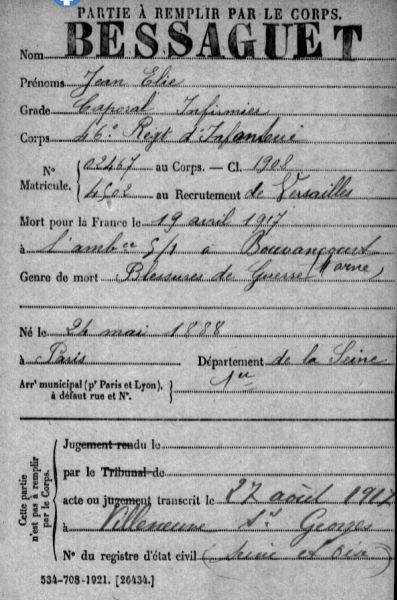 PARTIE À REMPLIR PAR LE CORPS.
Nom BESSAGUET
Prénoms Jean Elie
Grade Caporal Infirmier
Corps 46e Regt d'Infanterie
N° Matricule. { 02467 au Corps. — Cl. 1908
4502 au Recrutement de Versailles
Mort pour la France le 19 avril 1917
à l'ambce 5/1 à Bouvancourt
Genre de mort Blessures de Guerre (Marne)
Né le 24 mai 1888
à Paris Département de la Seine
Arrt municipal (pr Paris et Lyon), à défaut rue et N°. }
Cette partie n'est pas à remplir par le Corps. {
Jugement rendu le
par le Tribunal de
acte ou jugement transcrit le 27 août 1917
à Villeneuve St Georges
N° du registre d'état civil (Seine et Oise)
534-708-1921. [26434.]